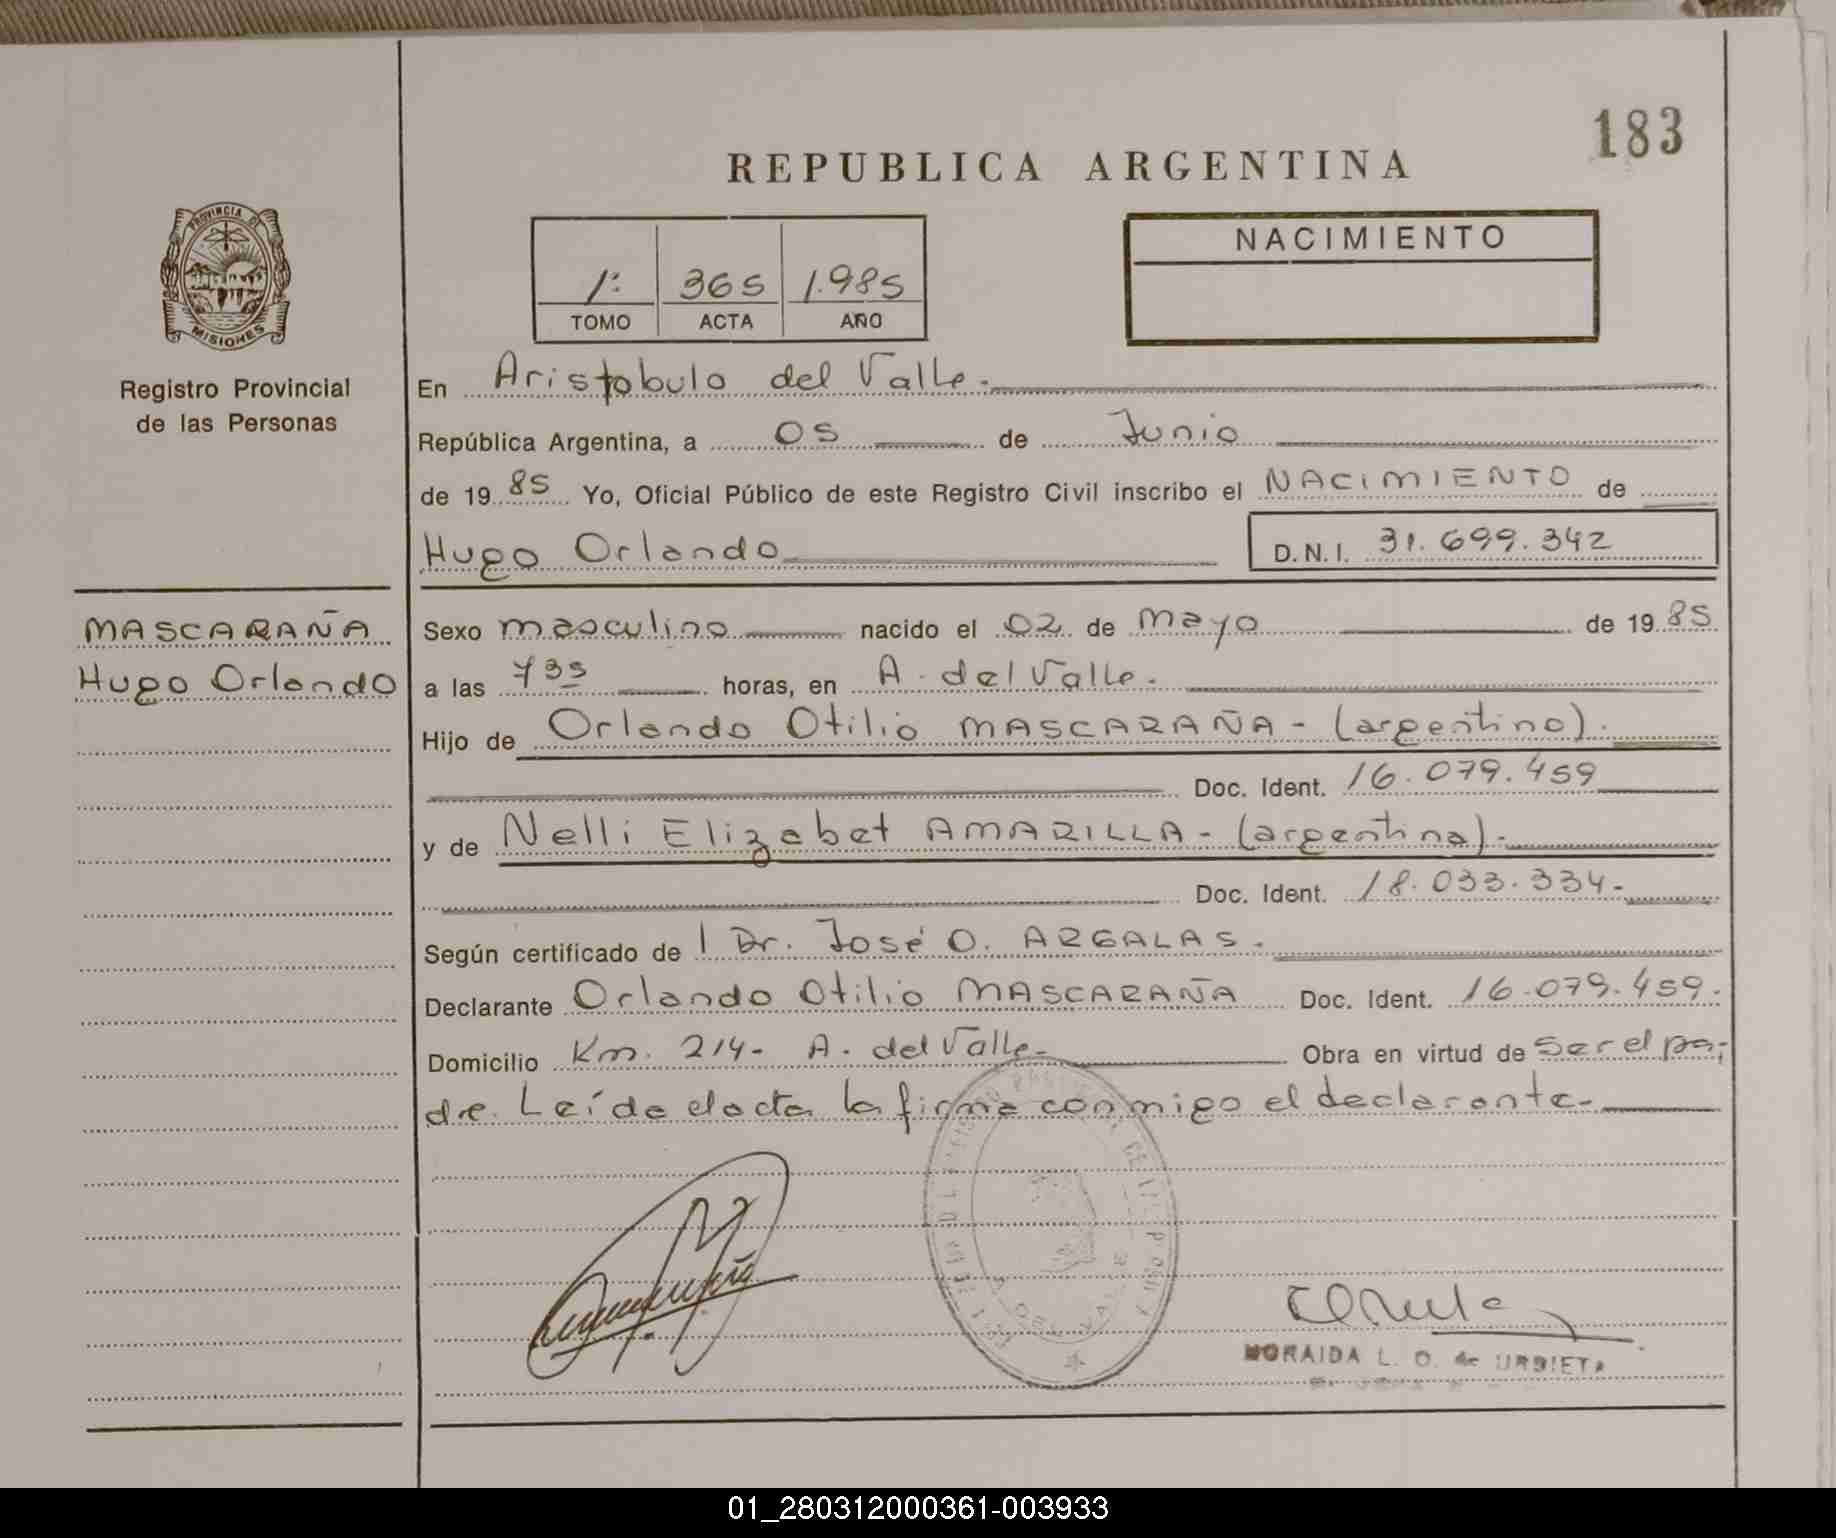 183
REPUBLICA ARGENTINA
PROVINCIA DE
MISIONES
Registro Provincial
de las Personas
1: 365 1.985
TOMO ACTA AÑO
NACIMIENTO
En Aristobulo del Valle.
República Argentina, a 05 de Junio
de 1985 Yo, Oficial Público de este Registro Civil inscribo el NACIMIENTO de
Hugo Orlando D.N.I. 31.699.342
MASCARAÑA
Hugo Orlando
Sexo masculino nacido el 02 de Mayo de 1985
a las 735 horas, en A. del Valle.
Hijo de Orlando Otilio MASCARAÑA - (argentino).
Doc. Ident. 16.079.459
y de Nelli Elizabet AMARILLA - (argentina).
Doc. Ident. 18.033.334.
Según certificado de l Dr. José O. ARGALAS.
Declarante Orlando Otilio MASCARAÑA Doc. Ident. 16.079.459.
Domicilio Km. 214- A. del Valle. Obra en virtud de Ser el pa-
dre. Leída el acta la firma conmigo el declarante.
NORAIDA L. O. de URBIETA
01_280312000361-003933